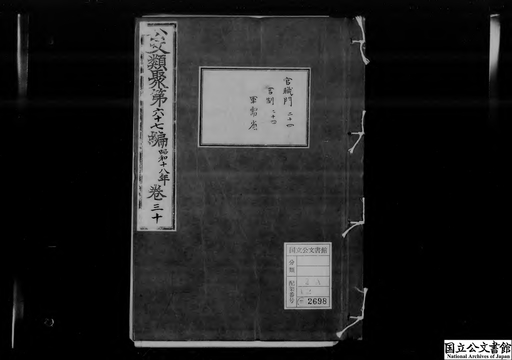 公文類聚第六十七編 昭和十八年 巻三十
官職門 二十四
官制 二十四
軍需省
国立公文書館
分類
配架番号
2698
国立公文書館
National Archives of Japan